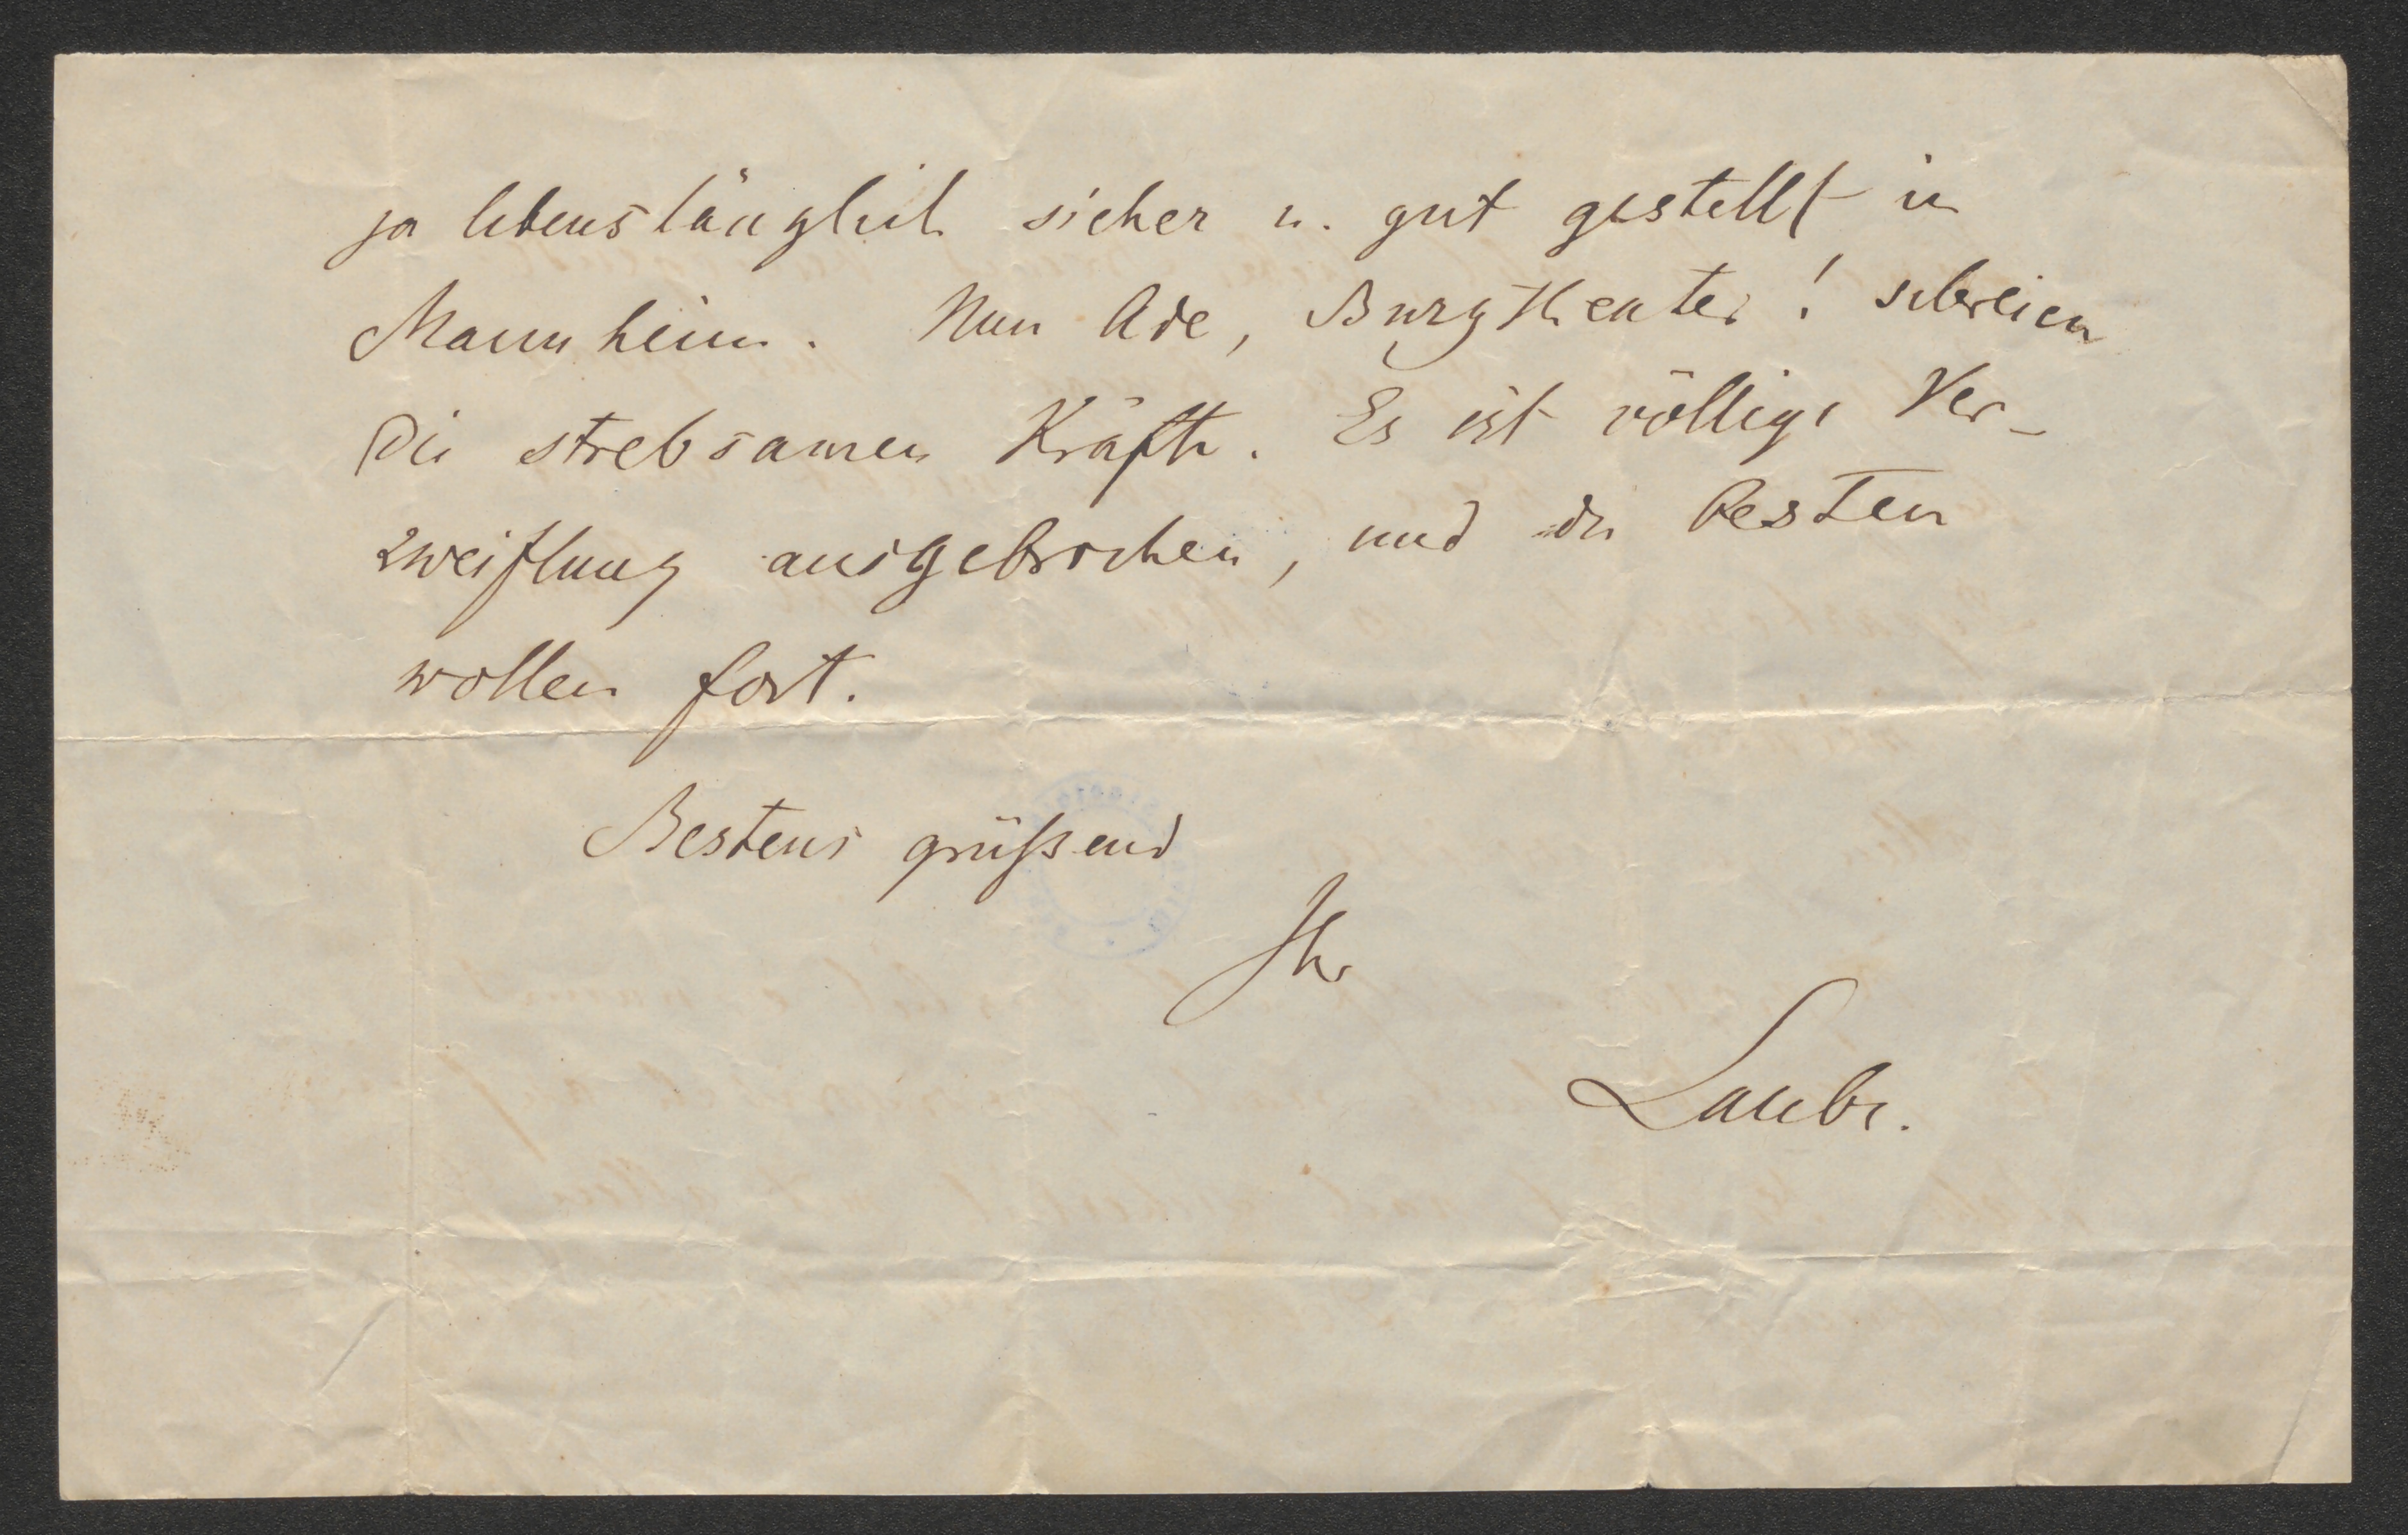 ja lebenslänglich sicher u. gut gestellt in
Mannheim. Nun Ade, Burgtheater! schreien
die strebsamen Kräfte. Es ist völlige Ver-
zweiflung ausgebrochen, und die Besten
wollen fort.
Bestens grüßend
Ihr
Laube.